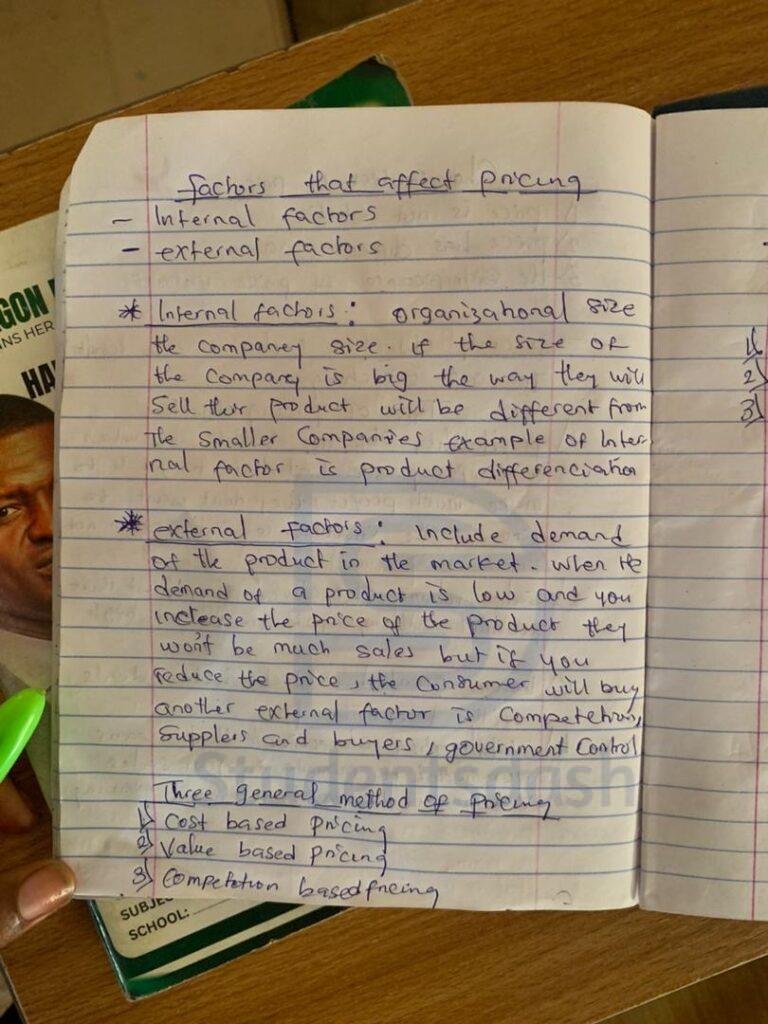 factors that affect pricing
- Internal factors
- external factors
* Internal factors: organizational size
the company size. if the size of
the company is big the way they will
Sell their product will be different from
The smaller Companies example of Inter
nal factor is product differenciation
* external factors: Include demand
of the product in the market. when the
demand of a product is low and you
increase the price of the product they
won't be much sales but if you
reduce the price, the Consumer will buy
another external factor is Competetion,
Suppliers and buyers, government Control
Three general method of pricing
1) Cost based pricing
2) Value based pricing
3) Competetion based pricing
Studentsdash
1)
2)
3)
GON
INS HER
HA
SUBJE
SCHOOL: